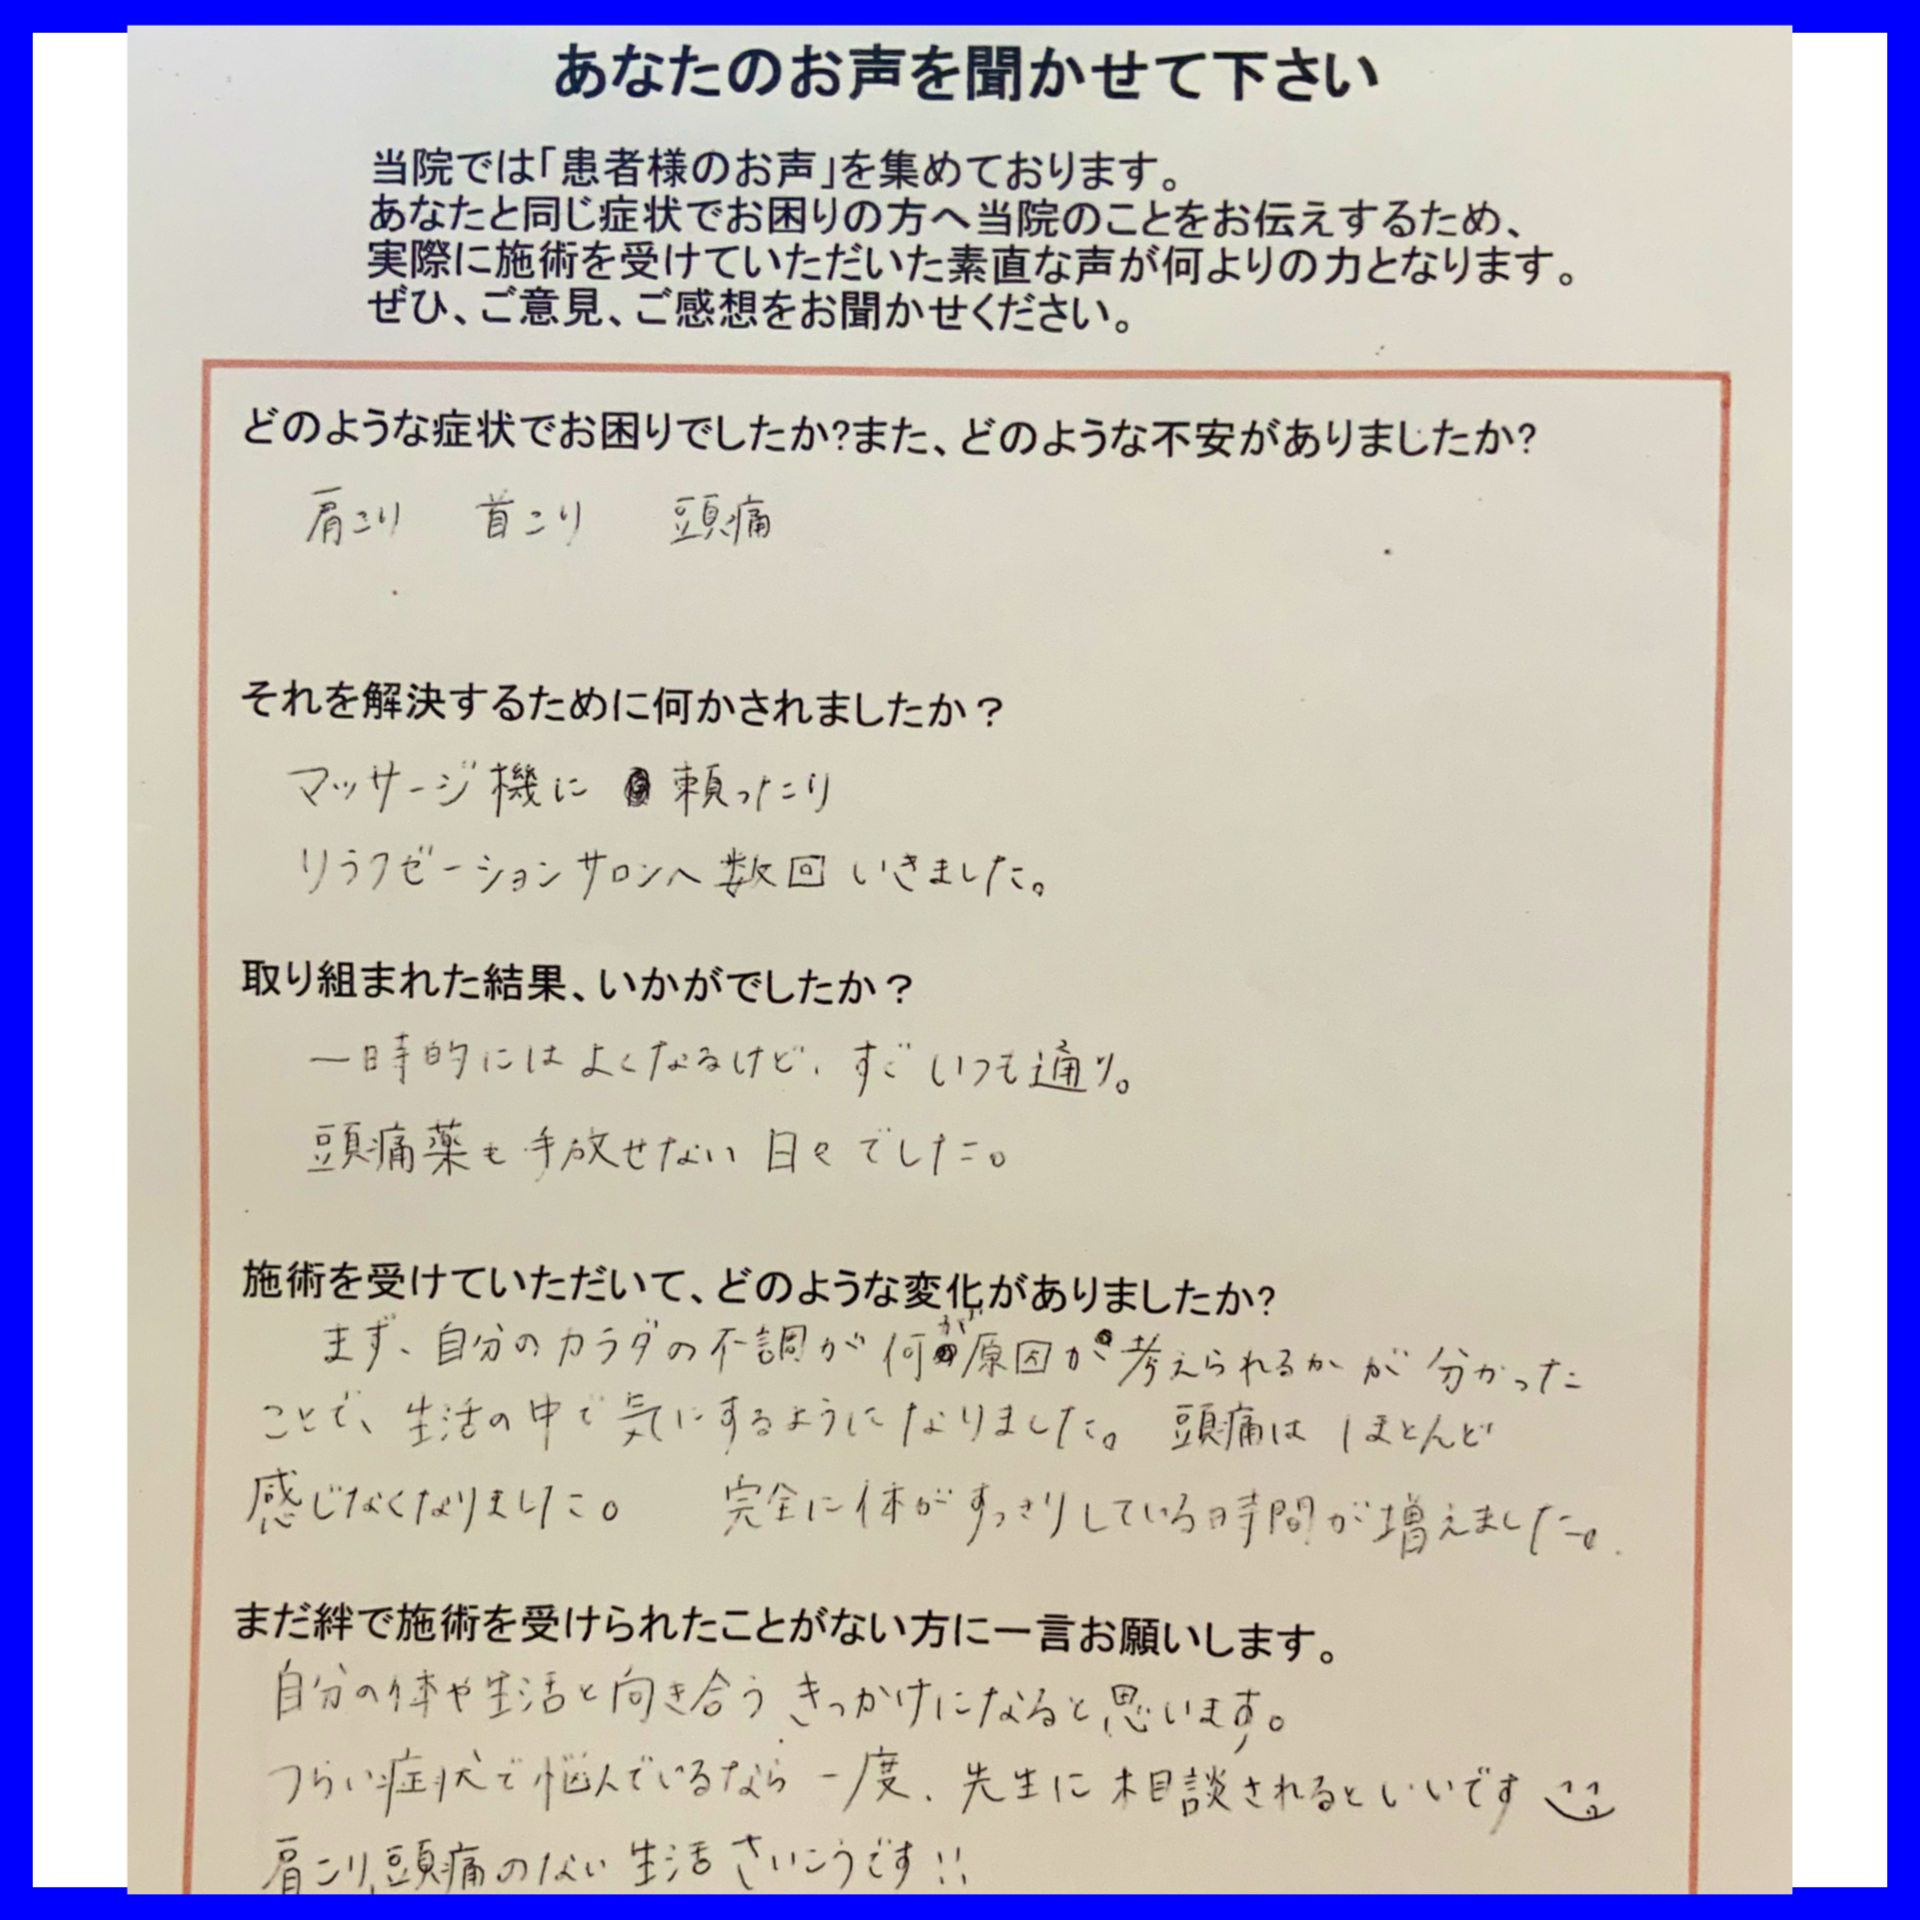 あなたのお声を聞かせて下さい
当院では「患者様のお声」を集めております。
あなたと同じ症状でお困りの方へ当院のことをお伝えするため、
実際に施術を受けていただいた素直な声が何よりの力となります。
ぜひ、ご意見、ご感想をお聞かせください。
どのような症状でお困りでしたか?また、どのような不安がありましたか?
肩こり 首こり 頭痛
それを解決するために何かされましたか?
マッサージ機に 頼ったり
リラクゼーションサロンへ数回 いきました。
取り組まれた結果、いかがでしたか?
一時的にはよくなるけど、すぐいつも通り。
頭痛薬も手放せない日々でした。
施術を受けていただいて、どのような変化がありましたか?
まず、自分のカラダの不調が何が原因か考えられるかが分かった
ことで、生活の中で気にするようになりました。頭痛はほとんど
感じなくなりました。 完全に体がすっきりしている時間が増えました。
まだ絆で施術を受けられたことがない方に一言お願いします。
自分の体や生活と向き合うきっかけになると思います。
つらい症状で悩んでいるなら一度、先生に相談されるといいです
肩こり、頭痛のない生活さいこうです!!